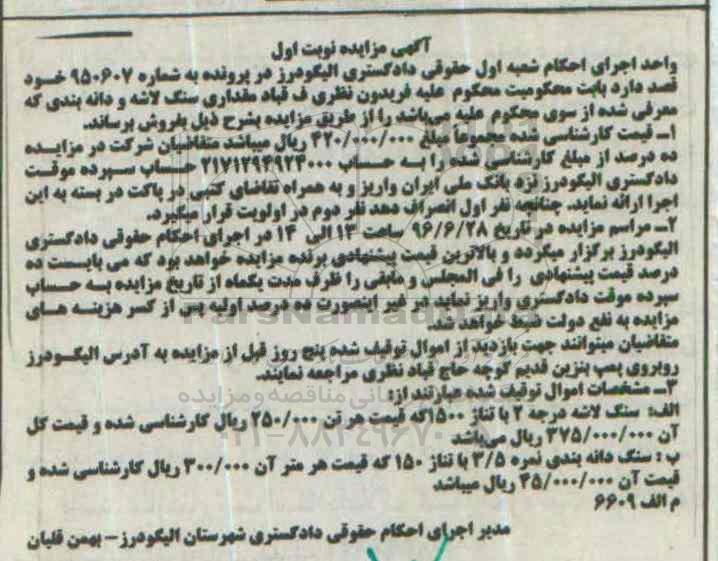 آگهی مزایده نوبت اول
واحد اجرای احکام شعبه اول حقوقی دادگستری الیگودرز در پرونده به شماره ۹۵۰۶۰۷ خود
قصد دارد بابت محکومیت محکوم علیه فریدون نظری ف قباد مقداری سنگ لاشه و دانه بندی که
معرفی شده از سوی محکوم علیه می‌باشد را از طریق مزایده بشرح ذیل بفروش برساند.
۱ــ قیمت کارشناسی شده مجموعاً مبلغ ۴۲۰/۰۰۰/۰۰۰ ریال میباشد متقاضیان شرکت در مزایده
ده درصد از مبلغ کارشناسی شده را به حساب ۲۱۷۱۲۹۴۹۲۴۰۰۰ حساب سپرده موقت
دادگستری الیگودرز نزد بانک ملی ایران واریز و به همراه تقاضای کتبی در پاکت در بسته به این
اجرا ارائه نماید. چنانچه نفر اول انصراف دهد نفر دوم در اولویت قرار میگیرد.
۲ــ مراسم مزایده در تاریخ ۹۶/۶/۲۸ ساعت ۱۳ الی ۱۴ در اجرای احکام حقوقی دادگستری
الیگودرز برگزار میگردد و بالاترین قیمت پیشنهادی برنده مزایده خواهد بود که می بایست ده
درصد قیمت پیشنهادی را فی المجلس و مابقی را ظرف مدت یکماه از تاریخ مزایده به حساب
سپرده موقت دادگستری واریز نماید در غیر اینصورت ده درصد اولیه پس از کسر هزینه های
مزایده به نفع دولت ضبط خواهد شد.
متقاضیان میتوانند جهت بازدید از اموال توقیف شده پنج روز قبل از مزایده به آدرس الیگودرز
روبروی پمپ بنزین قدیم کوچه حاج قباد نظری مراجعه نمایند.
۳ــ مشخصات اموال توقیف شده عبارتند از:
الف: سنگ لاشه درجه ۲ با تناژ ۱۵۰۰ که قیمت هر تن ۲۵۰/۰۰۰ ریال کارشناسی شده و قیمت کل
آن ۳۷۵/۰۰۰/۰۰۰ ریال می‌باشد
ب : سنگ دانه بندی نمره ۳/۵ با تناژ ۱۵۰ که قیمت هر متر آن ۳۰۰/۰۰۰ ریال کارشناسی شده و
قیمت آن ۴۵/۰۰۰/۰۰۰ ریال میباشد
م الف ۶۶۰۹
مدیر اجرای احکام حقوقی دادگستری شهرستان الیگودرز – بهمن قلیان